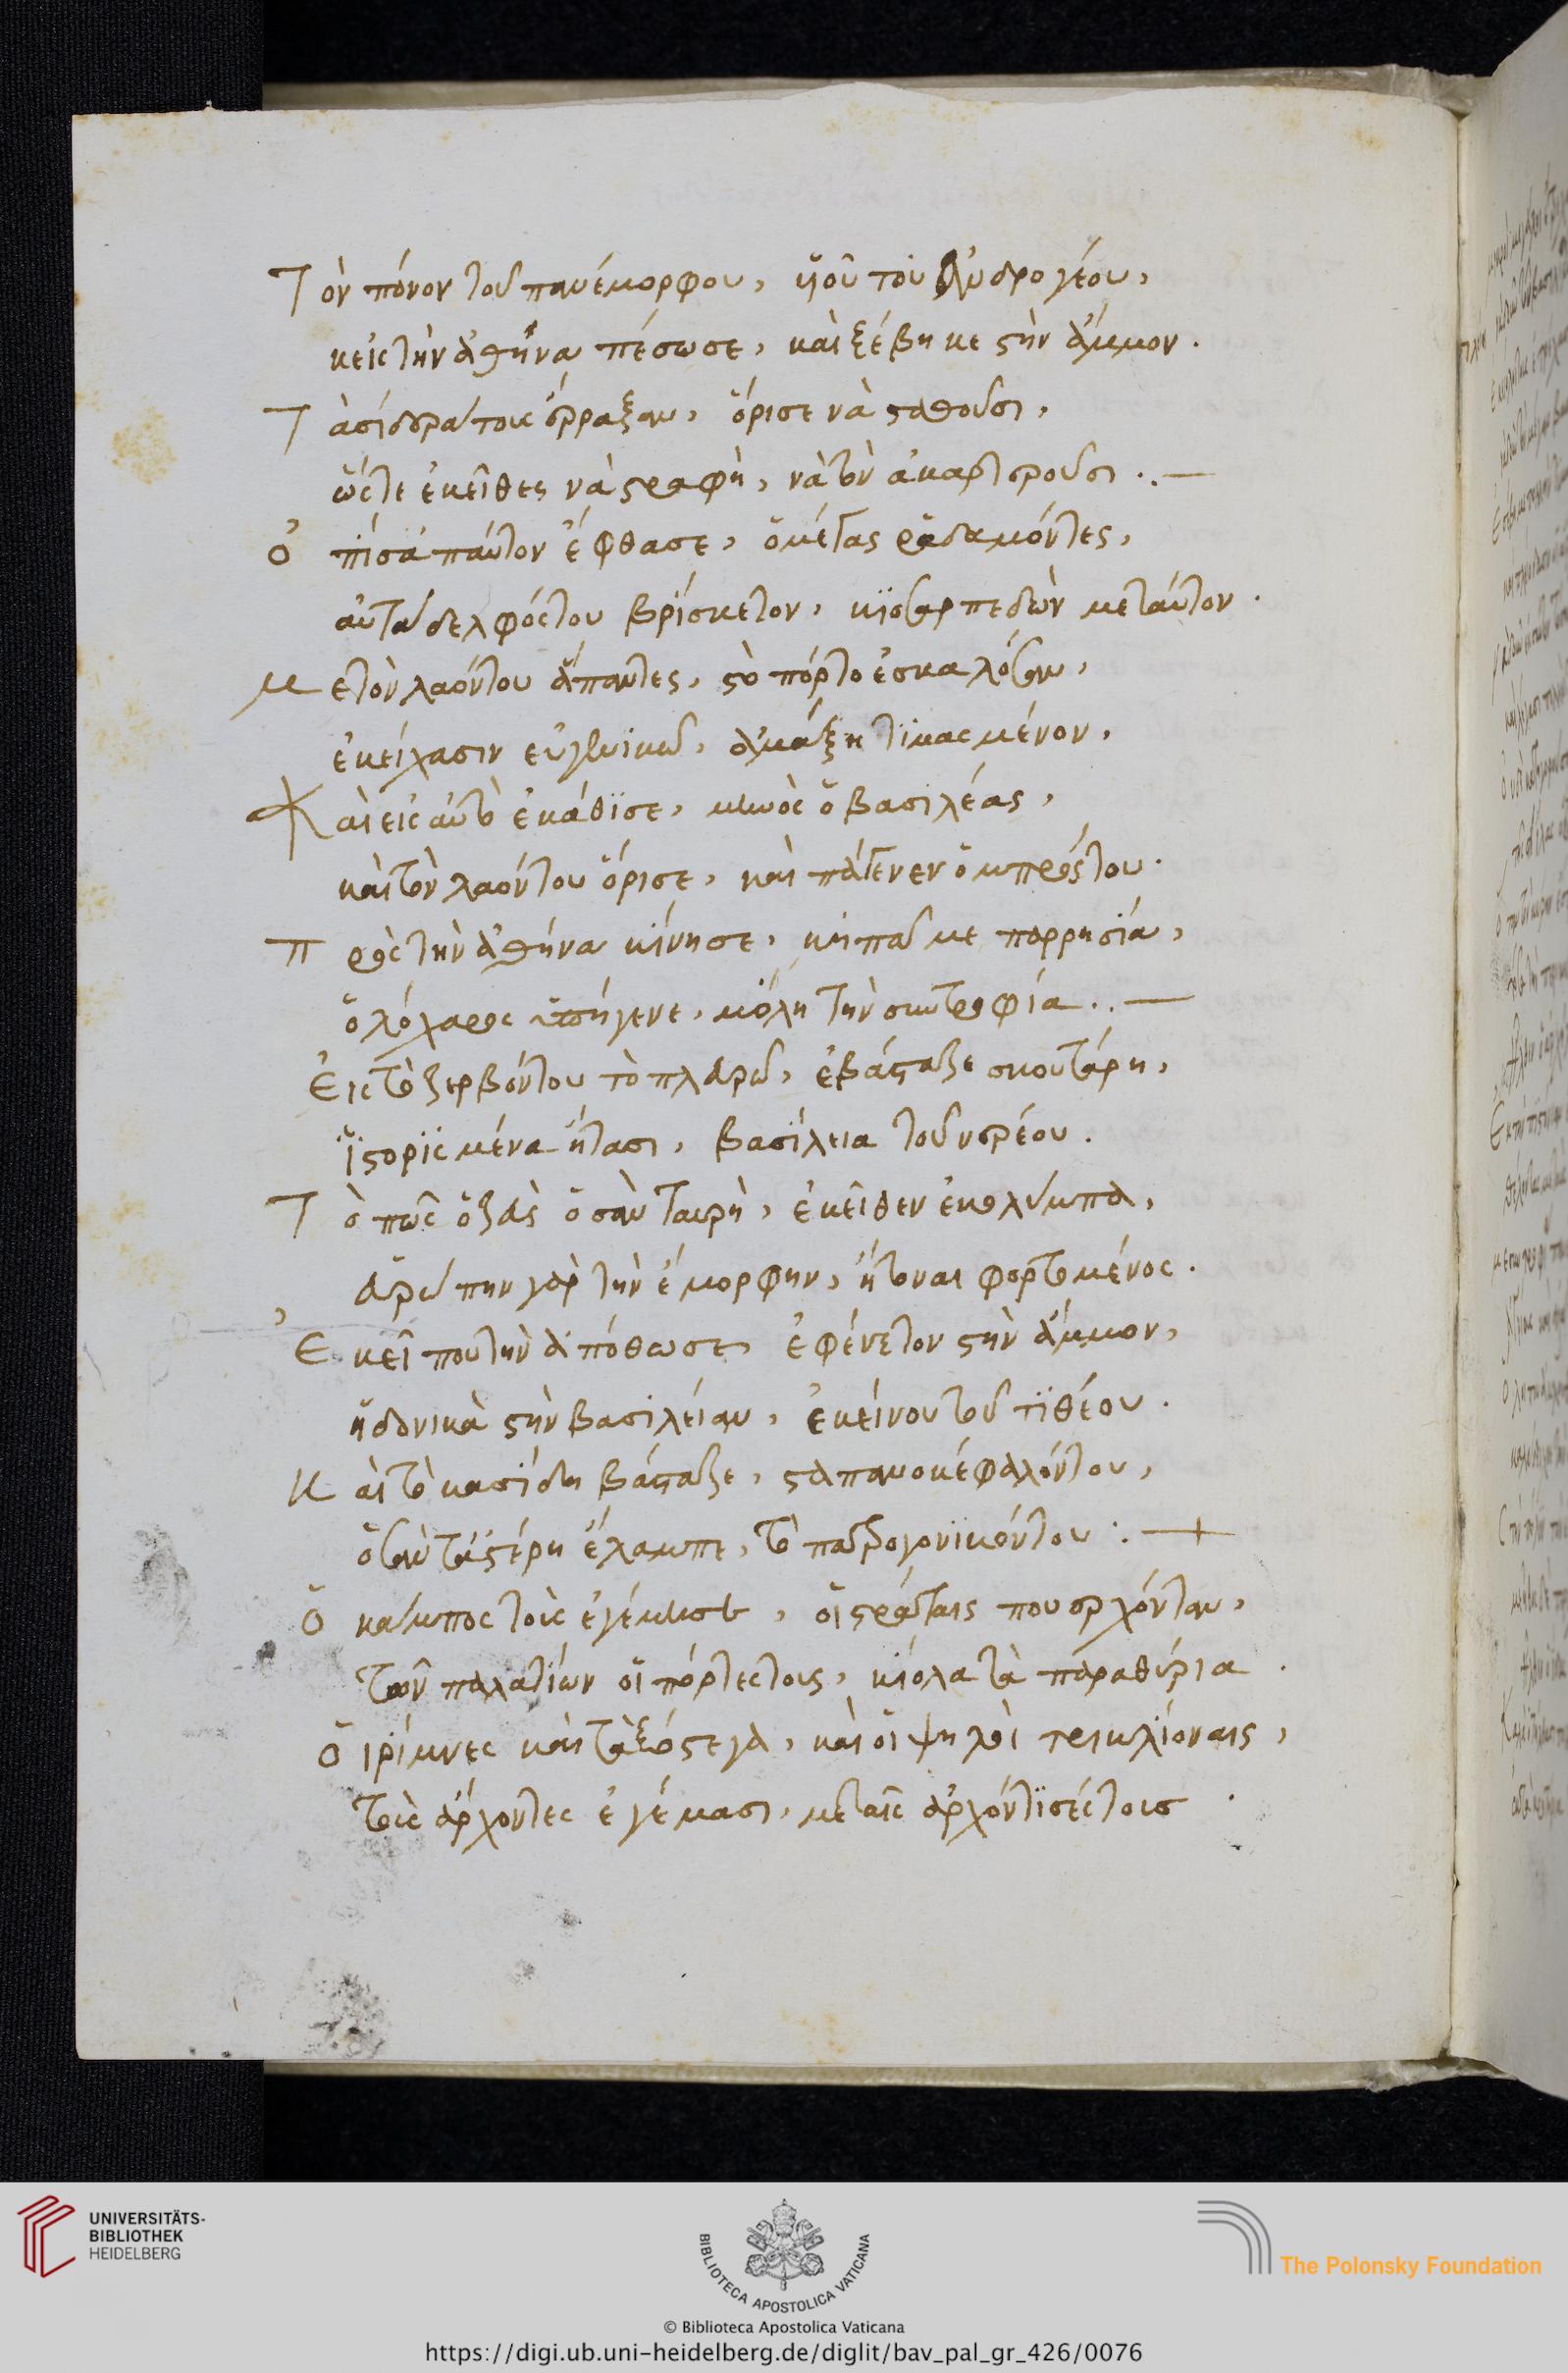 Τὸν πόνον τοῦ πανέμορφου, ϋἱοῦ τοῦ Ἀνδρογέου,
κεἰς τὴν ἀθήνα πέσωσε, καὶ ξέβηκε ςὴν ἄμμον.
Τὰ σίδρα τους ὅρραξαν, ὅρισε νὰ ςαθοῦσι,
ὥςτε ἐκεῖθες νὰ ςραφὴ, νὰ τὸν ἀκαρτεροῦσι.
Ὀπίσα παὐτον ἔφθασε, ὁ μέγας ραδαμόντες,
αὐταδελφός του βρίσκετον, κϊσαρπεδὼν μεταὐτον.
Με τὸν λαόν του ἅπαντες, ςὸ πόρτο ἐσκαλόσαν,
ἐκείχασιν εὐγενικὸ, ἀμάξη τϊμασμένον.
Καὶ εἰς αὐτὸ ἐκάθϊσε, μινὸς ὁ βασιλέας,
καὶ τὸν λαόν του ὅρισε, καὶ πάγενεν ὀμπρός του.
Πρὸς τὴν ἀθήνα κίνησε, κι πᾶ με παρρησϊά,
ὁλόχαρος ὑπήγενε, μόλη τὴν συντροφία.
Εἰς τὸ ζερβόν του τὸ πλαρὸ, ἐβάςταζε σκουτάρη,
ϊςορϊσμένα ἤτασι, βασϊλεια τοῦ νηρέου.
Τὸ πῶς ὁ ζὰς ὁσὰν ταυρὴ, ἐκεῖθεν ἐκολύμπα,
ἀρώπην γὰρ τὴν ἔμορφην, ἤτοναι φορτομένος.
Ἐκεῖ που τὴν ἀπόθωσε, ἐφένετον ςὴν ἄμμον,
ἡδονικὰ ςὴν βασιλείαν, ἐκείνου τοῦ τϊθέου.
Καὶ τὸ κασίδη βάςταζε, ςαπανοκέφαλόν του,
ὁσὰν τἀςέρη ἔλαμπε, τὸ πατρογονϊκόν του:
Ὁ κάμπος τοὶς ἐγέμισε, οἱ ςράταις που ἐρχόνταν,
τῶν παλατίων οἱ πόρτες τους, κϊόλα τὰ παραθύρια.
Οἱ ρίμνες καὶ τὰ ξόςεγα, καὶ οἱ ψηλοὶ τρικλϊόναις,
τοὶς ἄρχοντες ἐγέμασι, με ταῖς ἀρχόντϊσές τοις.
UNIVERSITÄTS-
BIBLIOTHEK
HEIDELBERG
BIBLIOTECA APOSTOLICA VATICANA
The Polonsky Foundation
© Biblioteca Apostolica Vaticana
https://digi.ub.uni-heidelberg.de/diglit/bav_pal_gr_426/0076